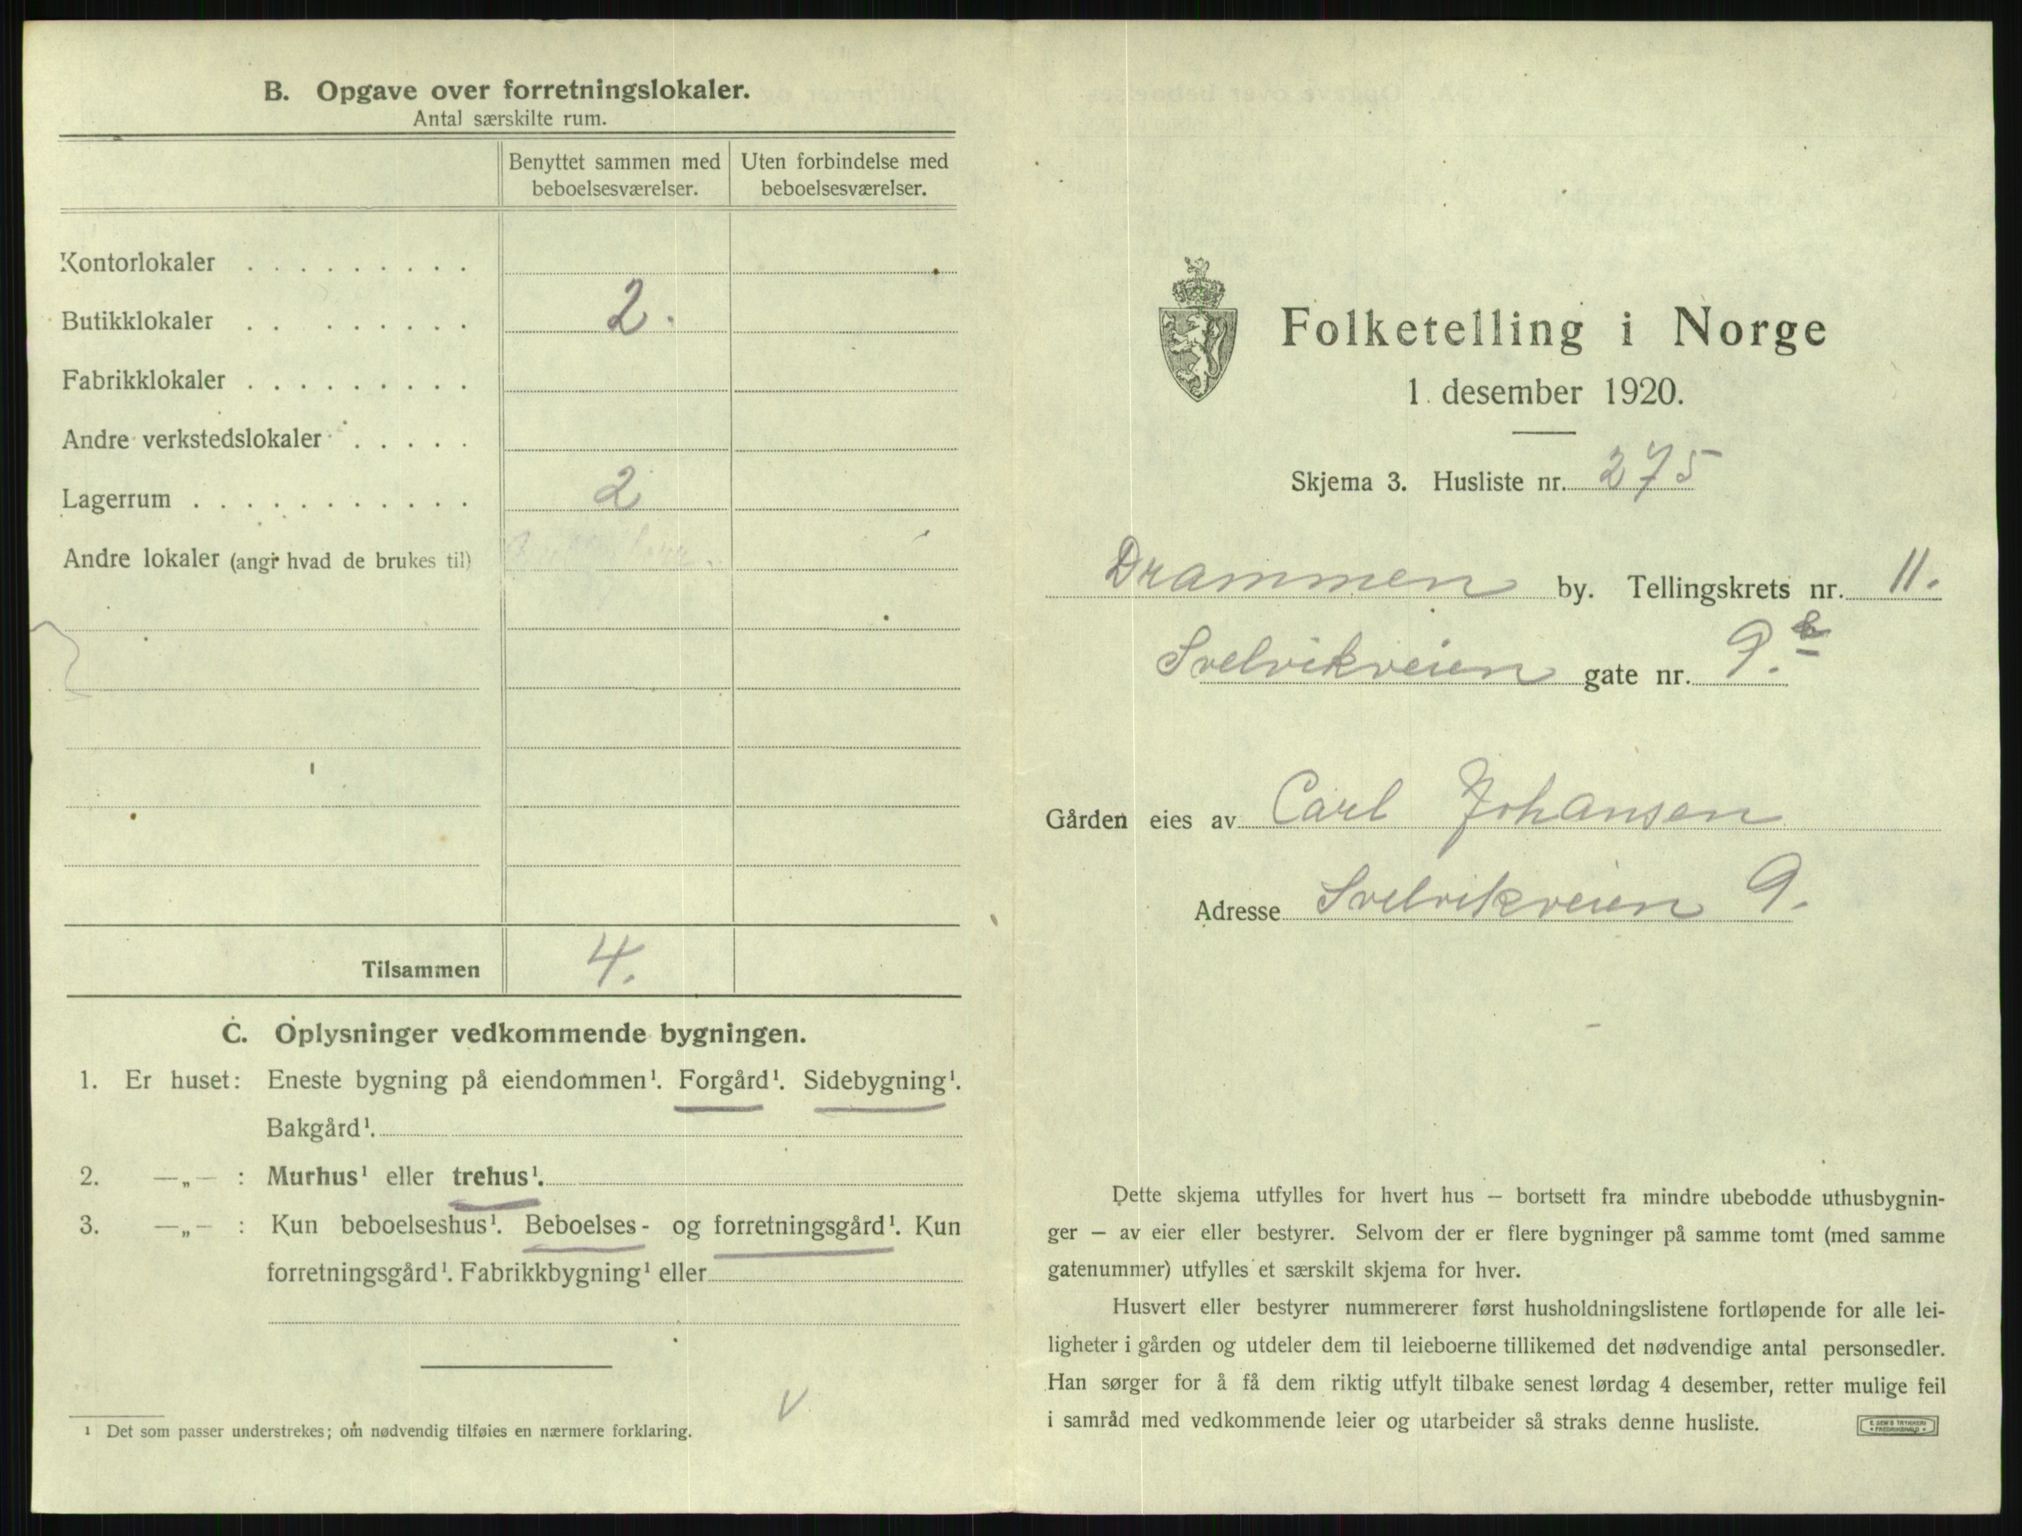 B. Opgave over forretningslokaler.
Antal særskilte rum.
Benyttet sammen med beboelsesværelser.
Uten forbindelse med beboelsesværelser.
Kontorlokaler . . . . . . . . .
Butikklokaler . . . . . . . . 2.
Fabrikklokaler . . . . . . . . .
Andre verkstedslokaler . . . . .
Lagerrum . . . . . . . . . . . 2
Andre lokaler (angi hvad de brukes til)
Tilsammen 4.
C. Oplysninger vedkommende bygningen.
1. Er huset: Eneste bygning på eiendommen¹. Forgård¹. Sidebygning¹.
Bakgård¹.
2. —„— : Murhus¹ eller trehus¹.
3. —„— : Kun beboelseshus¹. Beboelses- og forretningsgård¹. Kun
forretningsgård¹. Fabrikkbygning¹ eller
V
¹ Det som passer understrekes; om nødvendig tilføies en nærmere forklaring.
Folketelling i Norge
1. desember 1920.
Skjema 3. Husliste nr. 275
Drammen by. Tellingskrets nr. 11.
Svelvikveien gate nr. 9. b
Gården eies av Carl Johansen
Adresse Svelvikveien 9.
Dette skjema utfylles for hvert hus — bortsett fra mindre ubebodde uthusbygnin-
ger — av eier eller bestyrer. Selvom der er flere bygninger på samme tomt (med samme
gatenummer) utfylles et særskilt skjema for hver.
Husvert eller bestyrer nummererer først husholdningslistene fortløpende for alle lei-
ligheter i gården og utdeler dem til leieboerne tillikemed det nødvendige antal personsedler.
Han sørger for å få dem riktig utfylt tilbake senest lørdag 4 desember, retter mulige feil
i samråd med vedkommende leier og utarbeider så straks denne husliste.
E. SEM'S TRYKKERI
FREDRIKSHALD